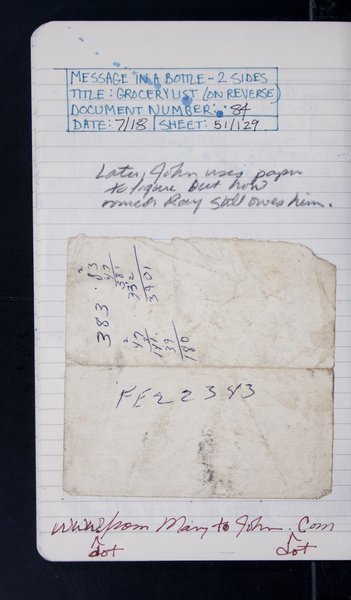 MESSAGE IN A BOTTLE - 2 SIDES
TITLE: GROCERY LIST (ON REVERSE)
DOCUMENT NUMBER: 84
DATE: 7/18 SHEET: 51/129
Later, John uses paper
to figure out how
much Ray still owes him.
383
83
47
3901
2
47
39
180
FE22383
www from Mary to John . Com
dot dot